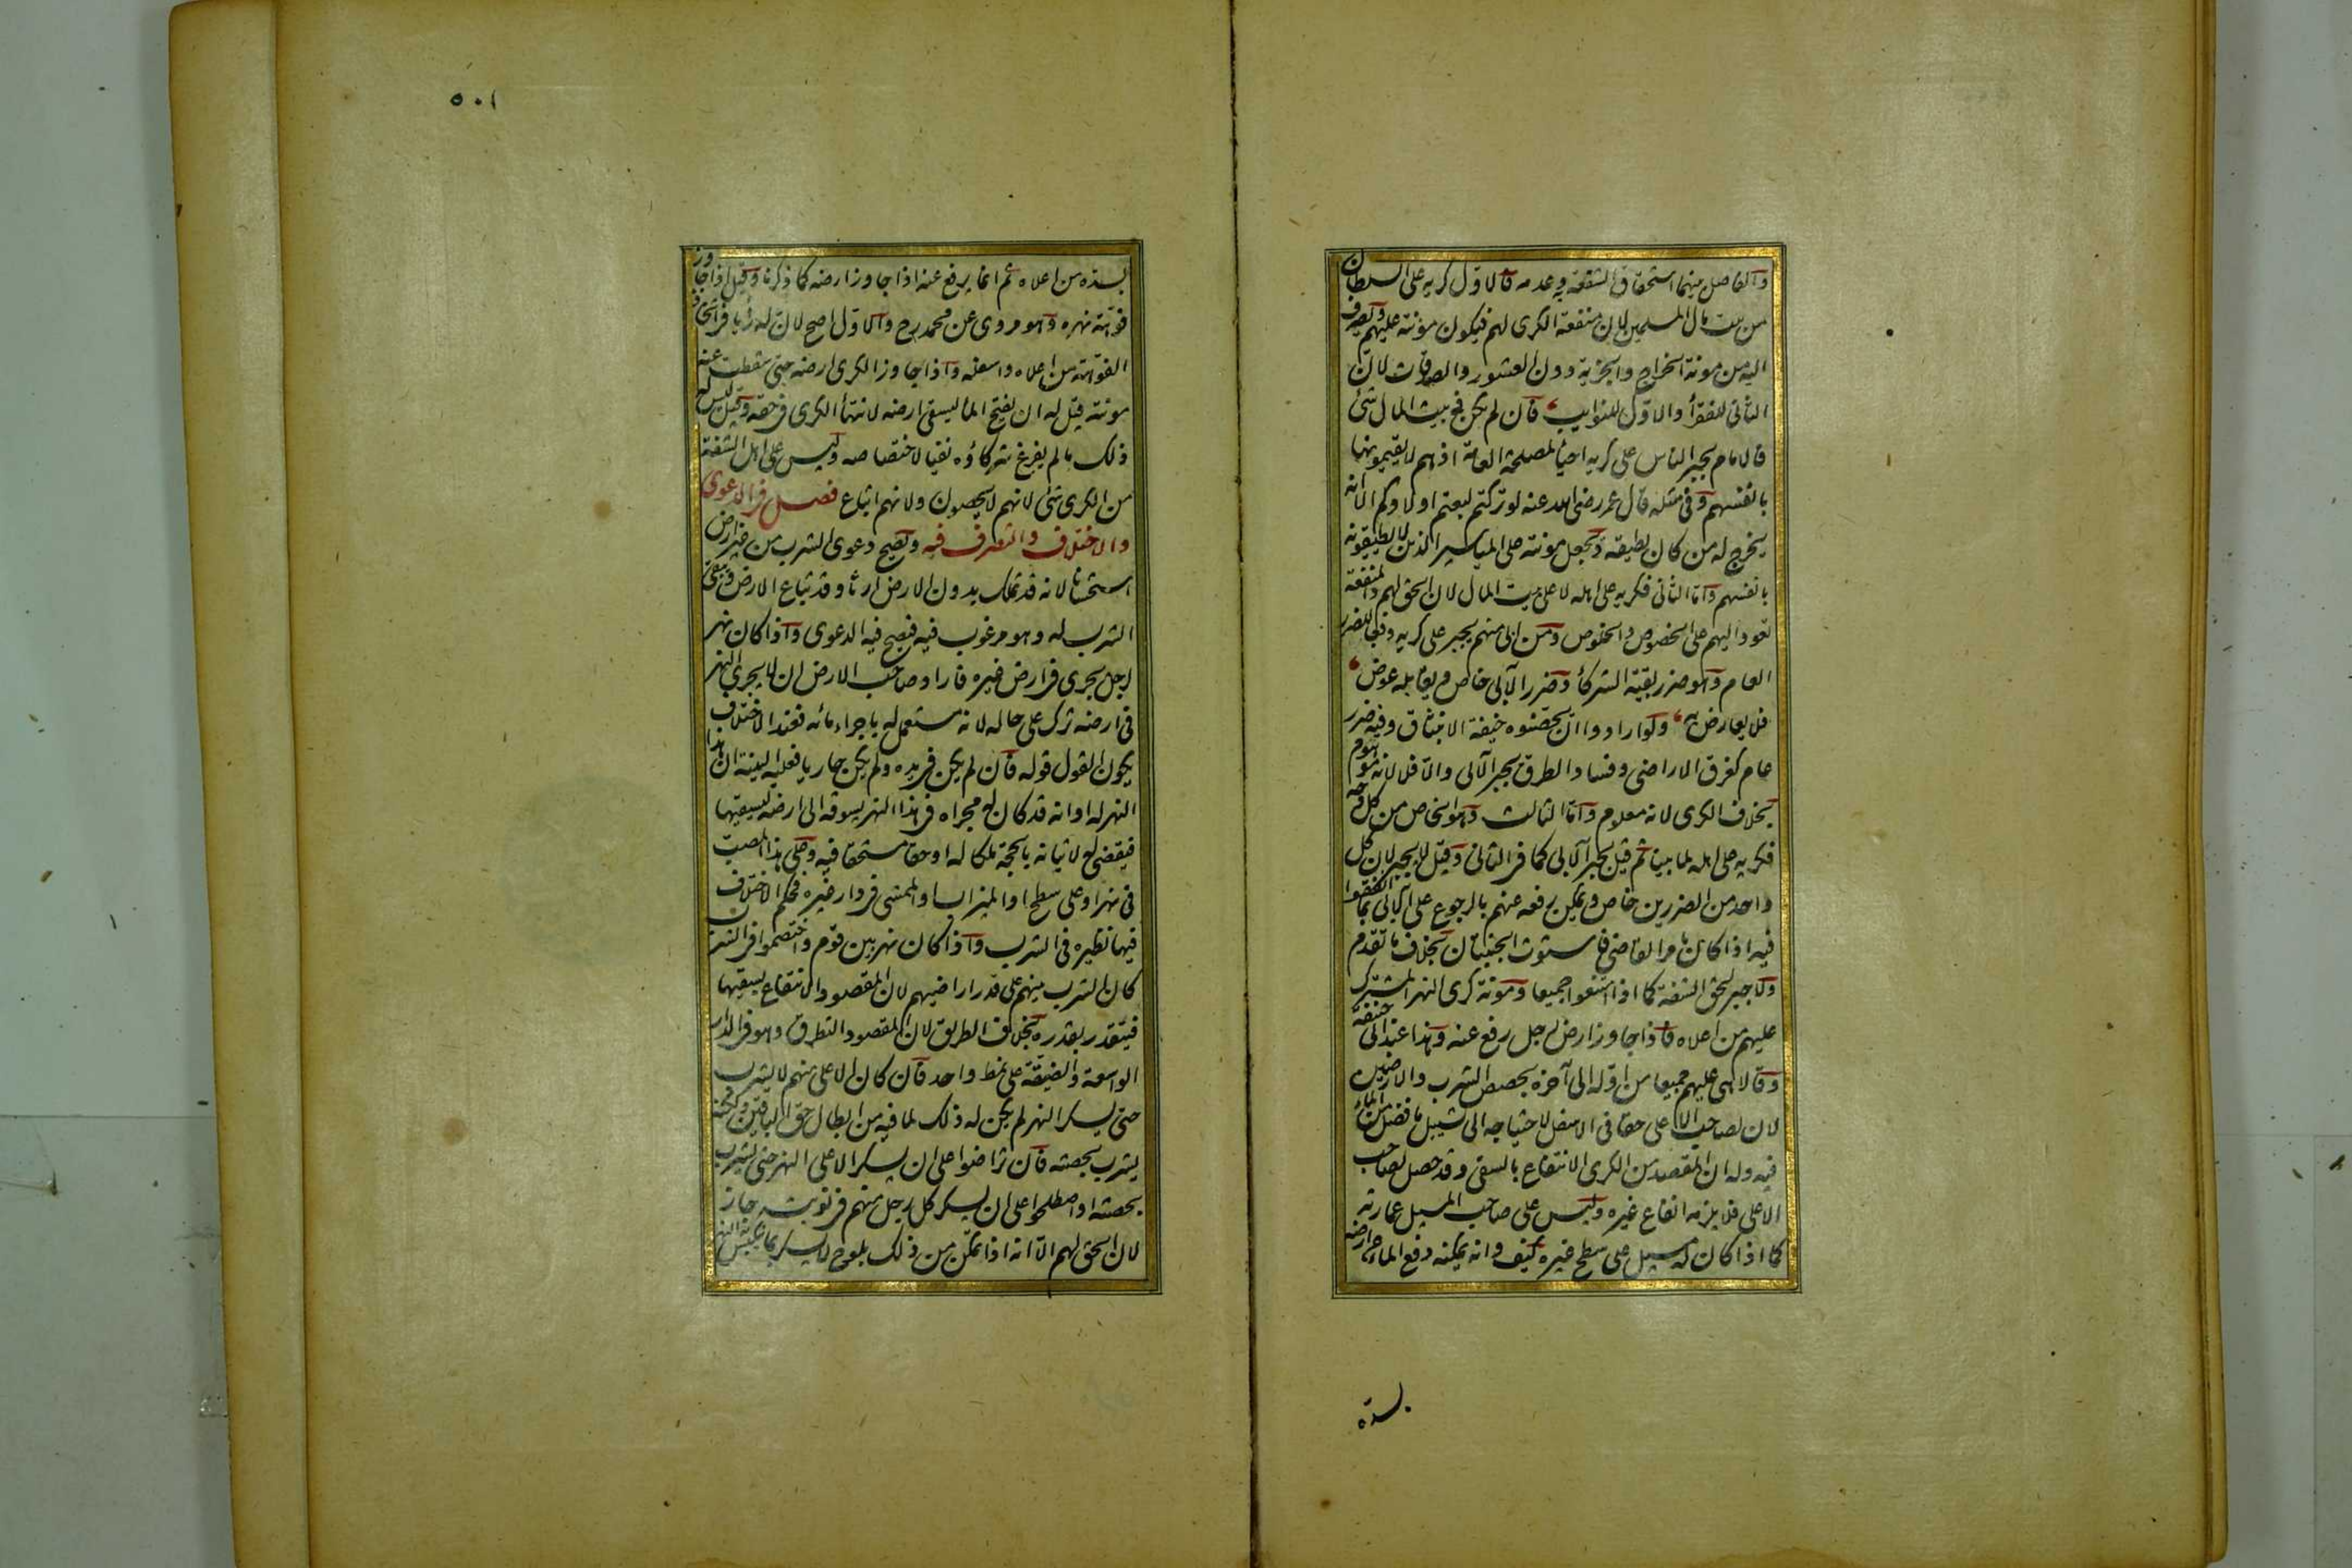 والفاصل بينهما استحقاق الشفعة به وعدمه فالاول كريه على السلطان
من بيت مال المسلمين لان منفعة الكرى لهم فيكون مؤنته عليهم ويصرف
اليه من مونة الخراج والجزية دون العشور والصدقات لان
الثانى للفقرأ والاول للنوايب فان لم يكن فى بيت المال شئ
فالامام يجبر الناس على كريه احيأ لمصلحة العامة اذ هم لا يقيمونها
بانفسهم وفى مثله قال عمر رضى الله عنه لو تركتم لبعتم اولادكم الا انه
يخرج له من كان يطيقه ويجعل مونته على المياسير الذين لا يطيقونه
بانفسهم واما الثانى فكريه على اهله لا على بيت المال لان الحق لهم والمنفعة
تعود اليهم على الخصوص والخلوص ومن ابى منهم يجبر على كريه دفعا للضرر
العام وهو ضرر بقية الشركأ وضرر الآبى خاص ويقابله عوض
فلا يعارض به ولو ارادوا ان يحصنوه خيفة الانبثاق وفيه ضرر
عام كغرق الاراضى وفساد الطرق يجبر الآبى والا فلا لانه موهوم
بخلاف الكرى لانه معلوم واما الثالث وهو الخاص من كل وجه
فكريه على اهله لما بينا ثم قيل يجبر الآبى كما فى الثانى وقيل لا يجبر لان كل
واحد من الضررين خاص ويمكن رفعه عنهم بالرجوع على الآبى بما انفقوا
فيه اذا كان بامر القاضى فاستوت الجنبتان بخلاف ما تقدم
ولا جبر لحق الشفة كما اذا امتنعوا جميعا ومونة كرى النهر المشترك
عليهم من اعلاه فاذا جاوز ارض رجل رفع عنه وهذا عند ابى حنيفة
وقالا هى عليهم جميعا من اوله الى آخره بحصص الشرب والارضين
لان لصاحب الاعلى حقا فى الاسفل لاحتياجه الى تسييل ما فضل من الماء
فيه وله ان المقصد من الكرى الانتفاع بالسقى وقد حصل لصاحب
الاعلى فلا يلزمه انفاع غيره وليس على صاحب المسيل عمارته
كما اذا كان له مسيل على سطح غيره كيف وانه يمكنه دفع الماء عن ارضه
بسده
٥٠١
بسده من اعلاه ثم انما يرفع عنه اذا جاوز ارضه كما ذكرنا وقيل اذا جاوز
فوهة نهره وهو مروى عن محمد رح والاول اصح لان له رأيا فى اتخاذ
الفوهة من اعلاه واسفله واذا جاوز الكرى ارضه حتى سقطت عنه
مونته قيل له ان يفتح الما ليسقى ارضه لانتهأ الكرى فى حقه وقيل ليس له
ذلك ما لم يفرغ شركاؤه نفيا لاختصاصه وليس على اهل الشفة
من الكرى شئ لانهم لا يحصون ولانهم اتباع فصل فى الدعوى
والاختلاف والتصرف فيه وتصح دعوى الشرب من غير ارض
استحسانا لانه قد تملك بدون الارض ارثا وقد تباع الارض ويبقى
الشرب له وهو مرغوب فيه فيصح فيه الدعوى واذا كان نهر
لرجل يجرى فى ارض غيره فاراد صاحب الارض ان لا يجرى النهر
فى ارضه ترك على حاله لانه مستعمل له باجراء مائه فعند الاختلاف
يكون القول قوله فان لم يكن فى يده ولم يكن جاريا فعليه البينة ان هذا
النهر له او انه قد كان له مجراه فى هذا النهر يسوقه الى ارضه ليسقيها
فيقضى له لاثباته بالحجة ملكا له او حقا مستحقا فيه وعلى هذا المصب
فى نهر او على سطح او الميزاب او الممشى فى دار غيره فحكم الاختلاف
فيها نظيره فى الشرب واذا كان نهر بين قوم واختصموا فى الشرب
كان الشرب بينهم على قدر اراضيهم لان المقصود الانتفاع بسقيها
فيتقدر بقدره بخلاف الطريق لان المقصود التطرق وهو فى الدار
الواسعة والضيقة على نمط واحد فان كان الاعلى منهم لا يشرب
حتى يسكر النهر لم يكن له ذلك لما فيه من ابطال حق الباقين ولكنه
يشرب بحصته فان تراضوا على ان يسكر الاعلى النهر حتى يشرب
بحصته او اصطلحوا على ان يسكر كل رجل منهم فى نوبته جاز
لان الحق لهم الا انه اذا تمكن من ذلك بلوح لا يسكر بما ينكبس به النهر